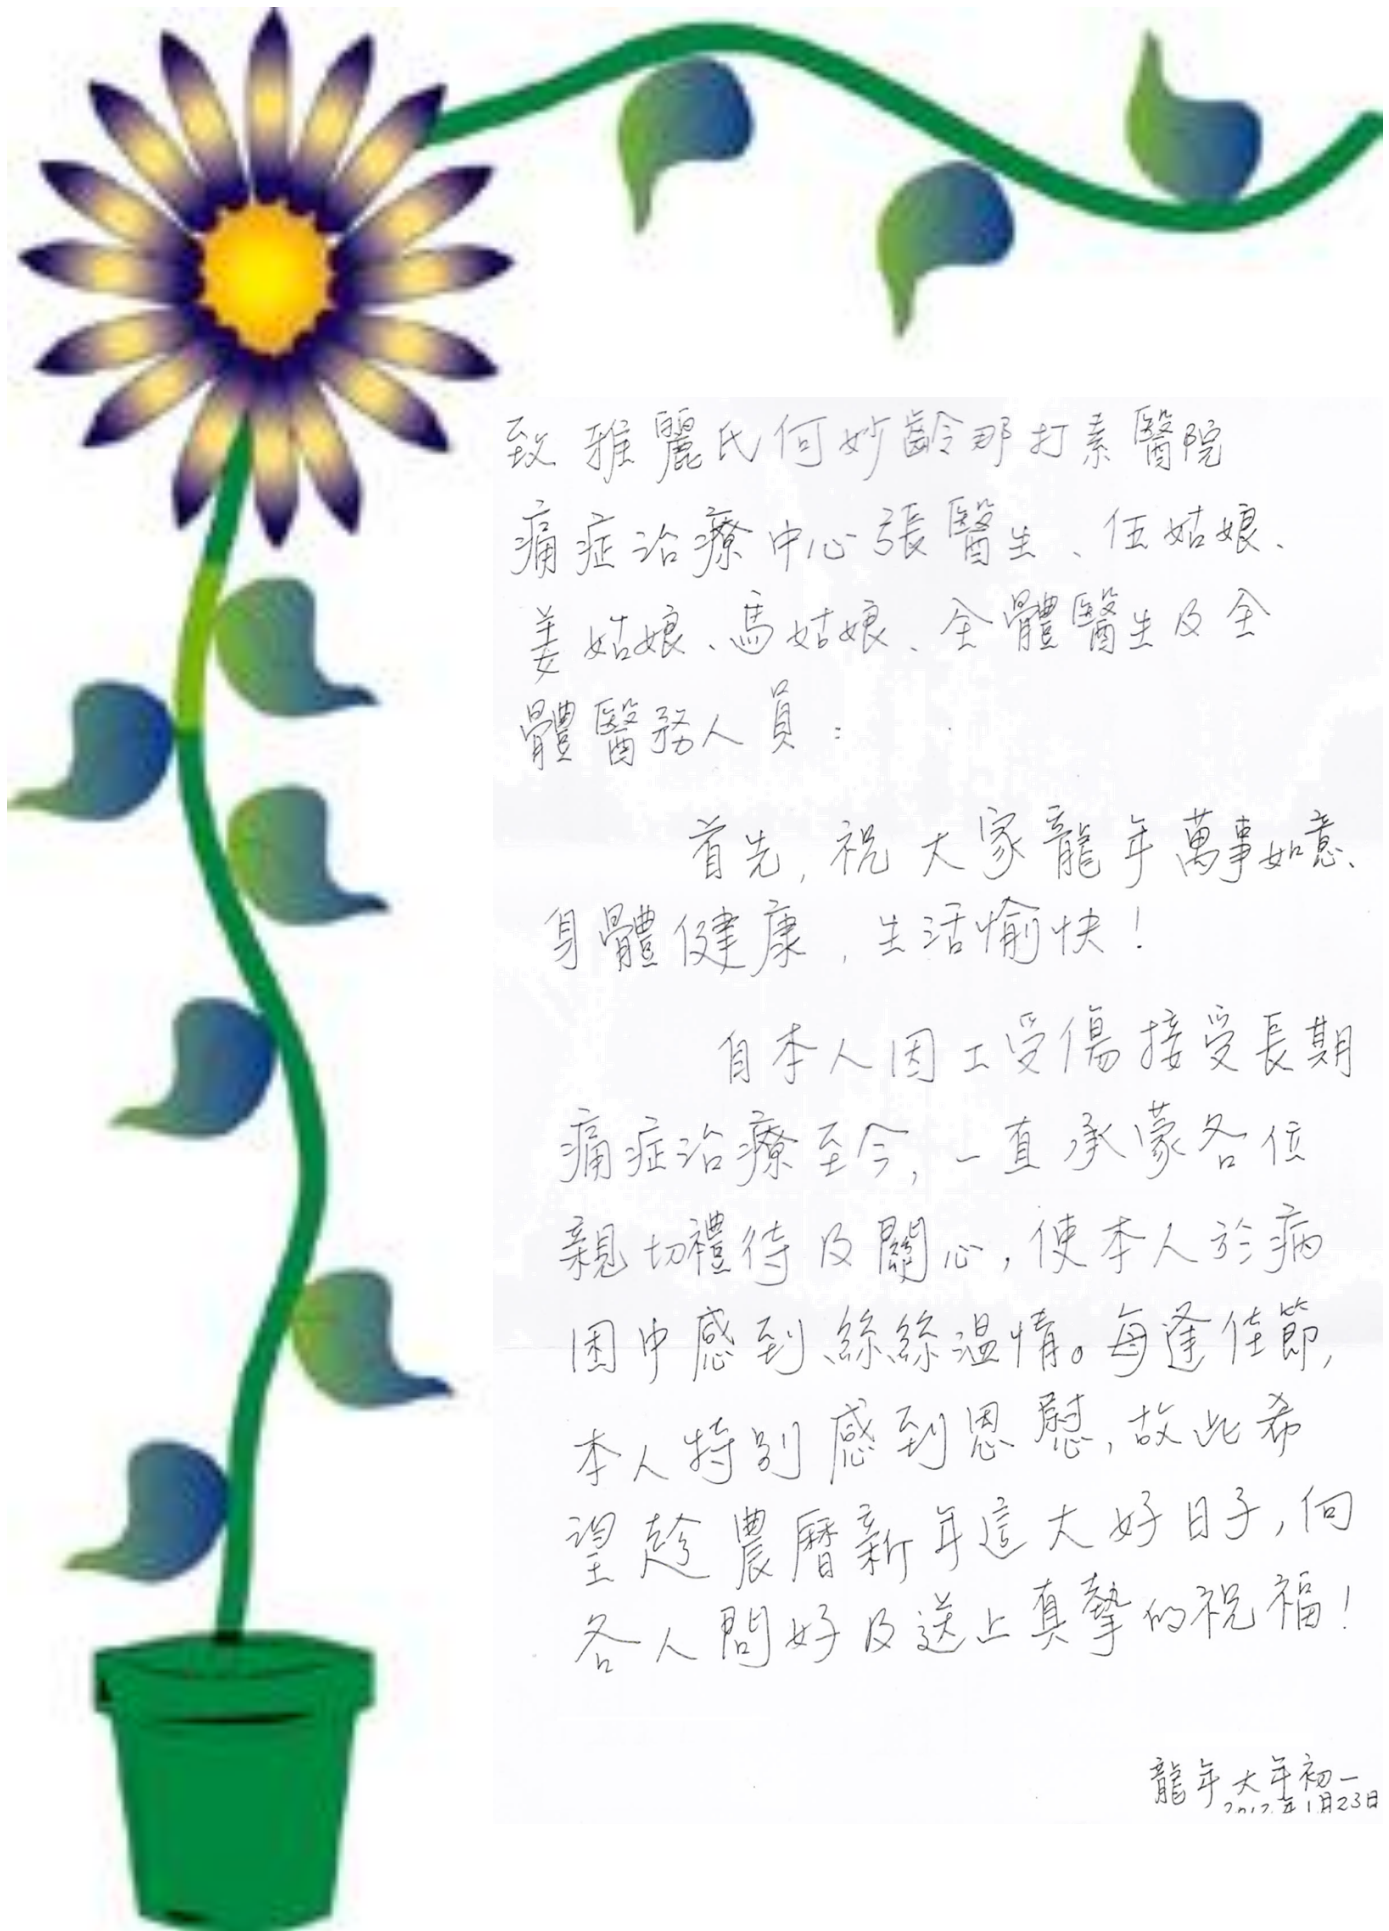 致雅麗氏何妙齡那打素醫院
痛症治療中心張醫生、伍姑娘、
姜姑娘、馬姑娘、全體醫生及全
體醫務人員：
首先，祝大家龍年萬事如意、
身體健康，生活愉快！
自本人因工受傷接受長期
痛症治療至今，一直承蒙各位
親切禮待及關心，使本人於病
困中感到絲絲温情。每逢佳節，
本人特別感到恩慰，故此希
望趁農曆新年這大好日子，向
各人問好及送上真摯的祝福！
龍年大年初一
2012年1月23日